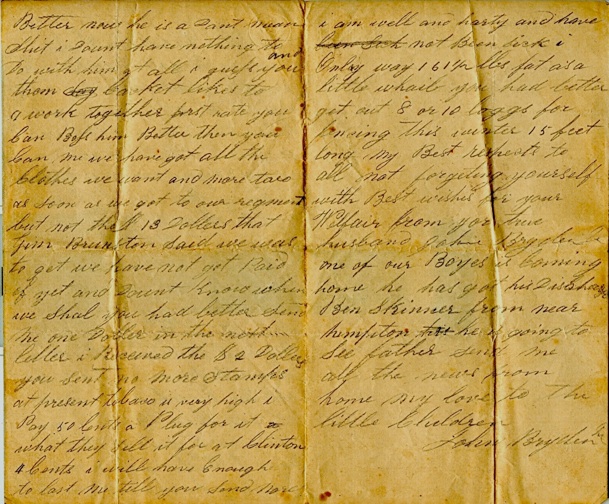 Better now he is a Dant mean
Shit i Dount have nothing to
Do with him at all i guess you and
them Say Cocket likes to
work together first rate you
Can Boss him Better then you
Can me we have got all the
Clothes we want and more taco
as soon as we got to our regment
but not the $ 13 Dollers that
Jim Brunston Said we was
to get we have not got Paid
yet and Dount Know when
we Shal you had better Send
me one Doller in the next
letter i Received the $ 2 Dollers
you Sent no more Stamps
at present tobaco is very high i
Pay 50 Cents a Plug for it
what they sell it for at Clinton
4 Cents i will have Enough
to last me till you Send more
i am well and harty and have
been Sick not Been Sick i
Only way 161½ lbs fat as a
little whail you had better
get out 8 or 10 loggs for
fencing this winter 15 feet
long my Best respects to
all not forgiting yourself
with Best wishes for your
Welfair from your true
husband John Bryden Jr
one of our Boyes is Coming
home he has got his Discharge
Ben Skinner from near
hampton he is going to
See father Send me
all the news from
home my love to the
little Children
John Bryden Jr